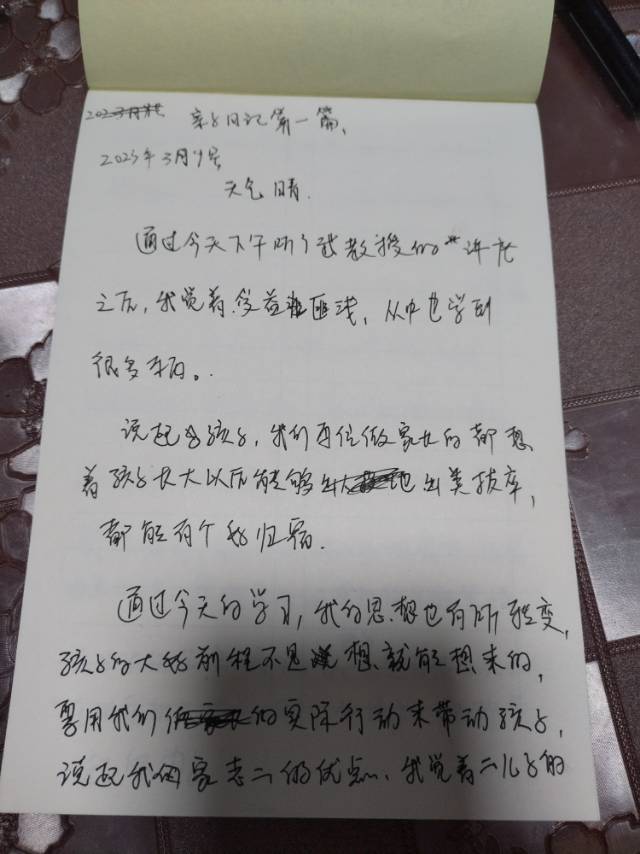 亲子日记第一篇、
2023年3月9号
天气晴.
通过今天下午听了武教授的讲座
之后,我觉着受益匪浅,从中也学到
很多东西。
说起孩子,我们每位做家长的都想
着孩子长大以后能够出类拔萃,
都能有个好归宿.
通过今天的学习,我的思想也有所改变,
孩子的大好前程不是想就能想来的,
要用我们的实际行动来带动孩子,
说起我们家老二的优点、我觉着二儿子的